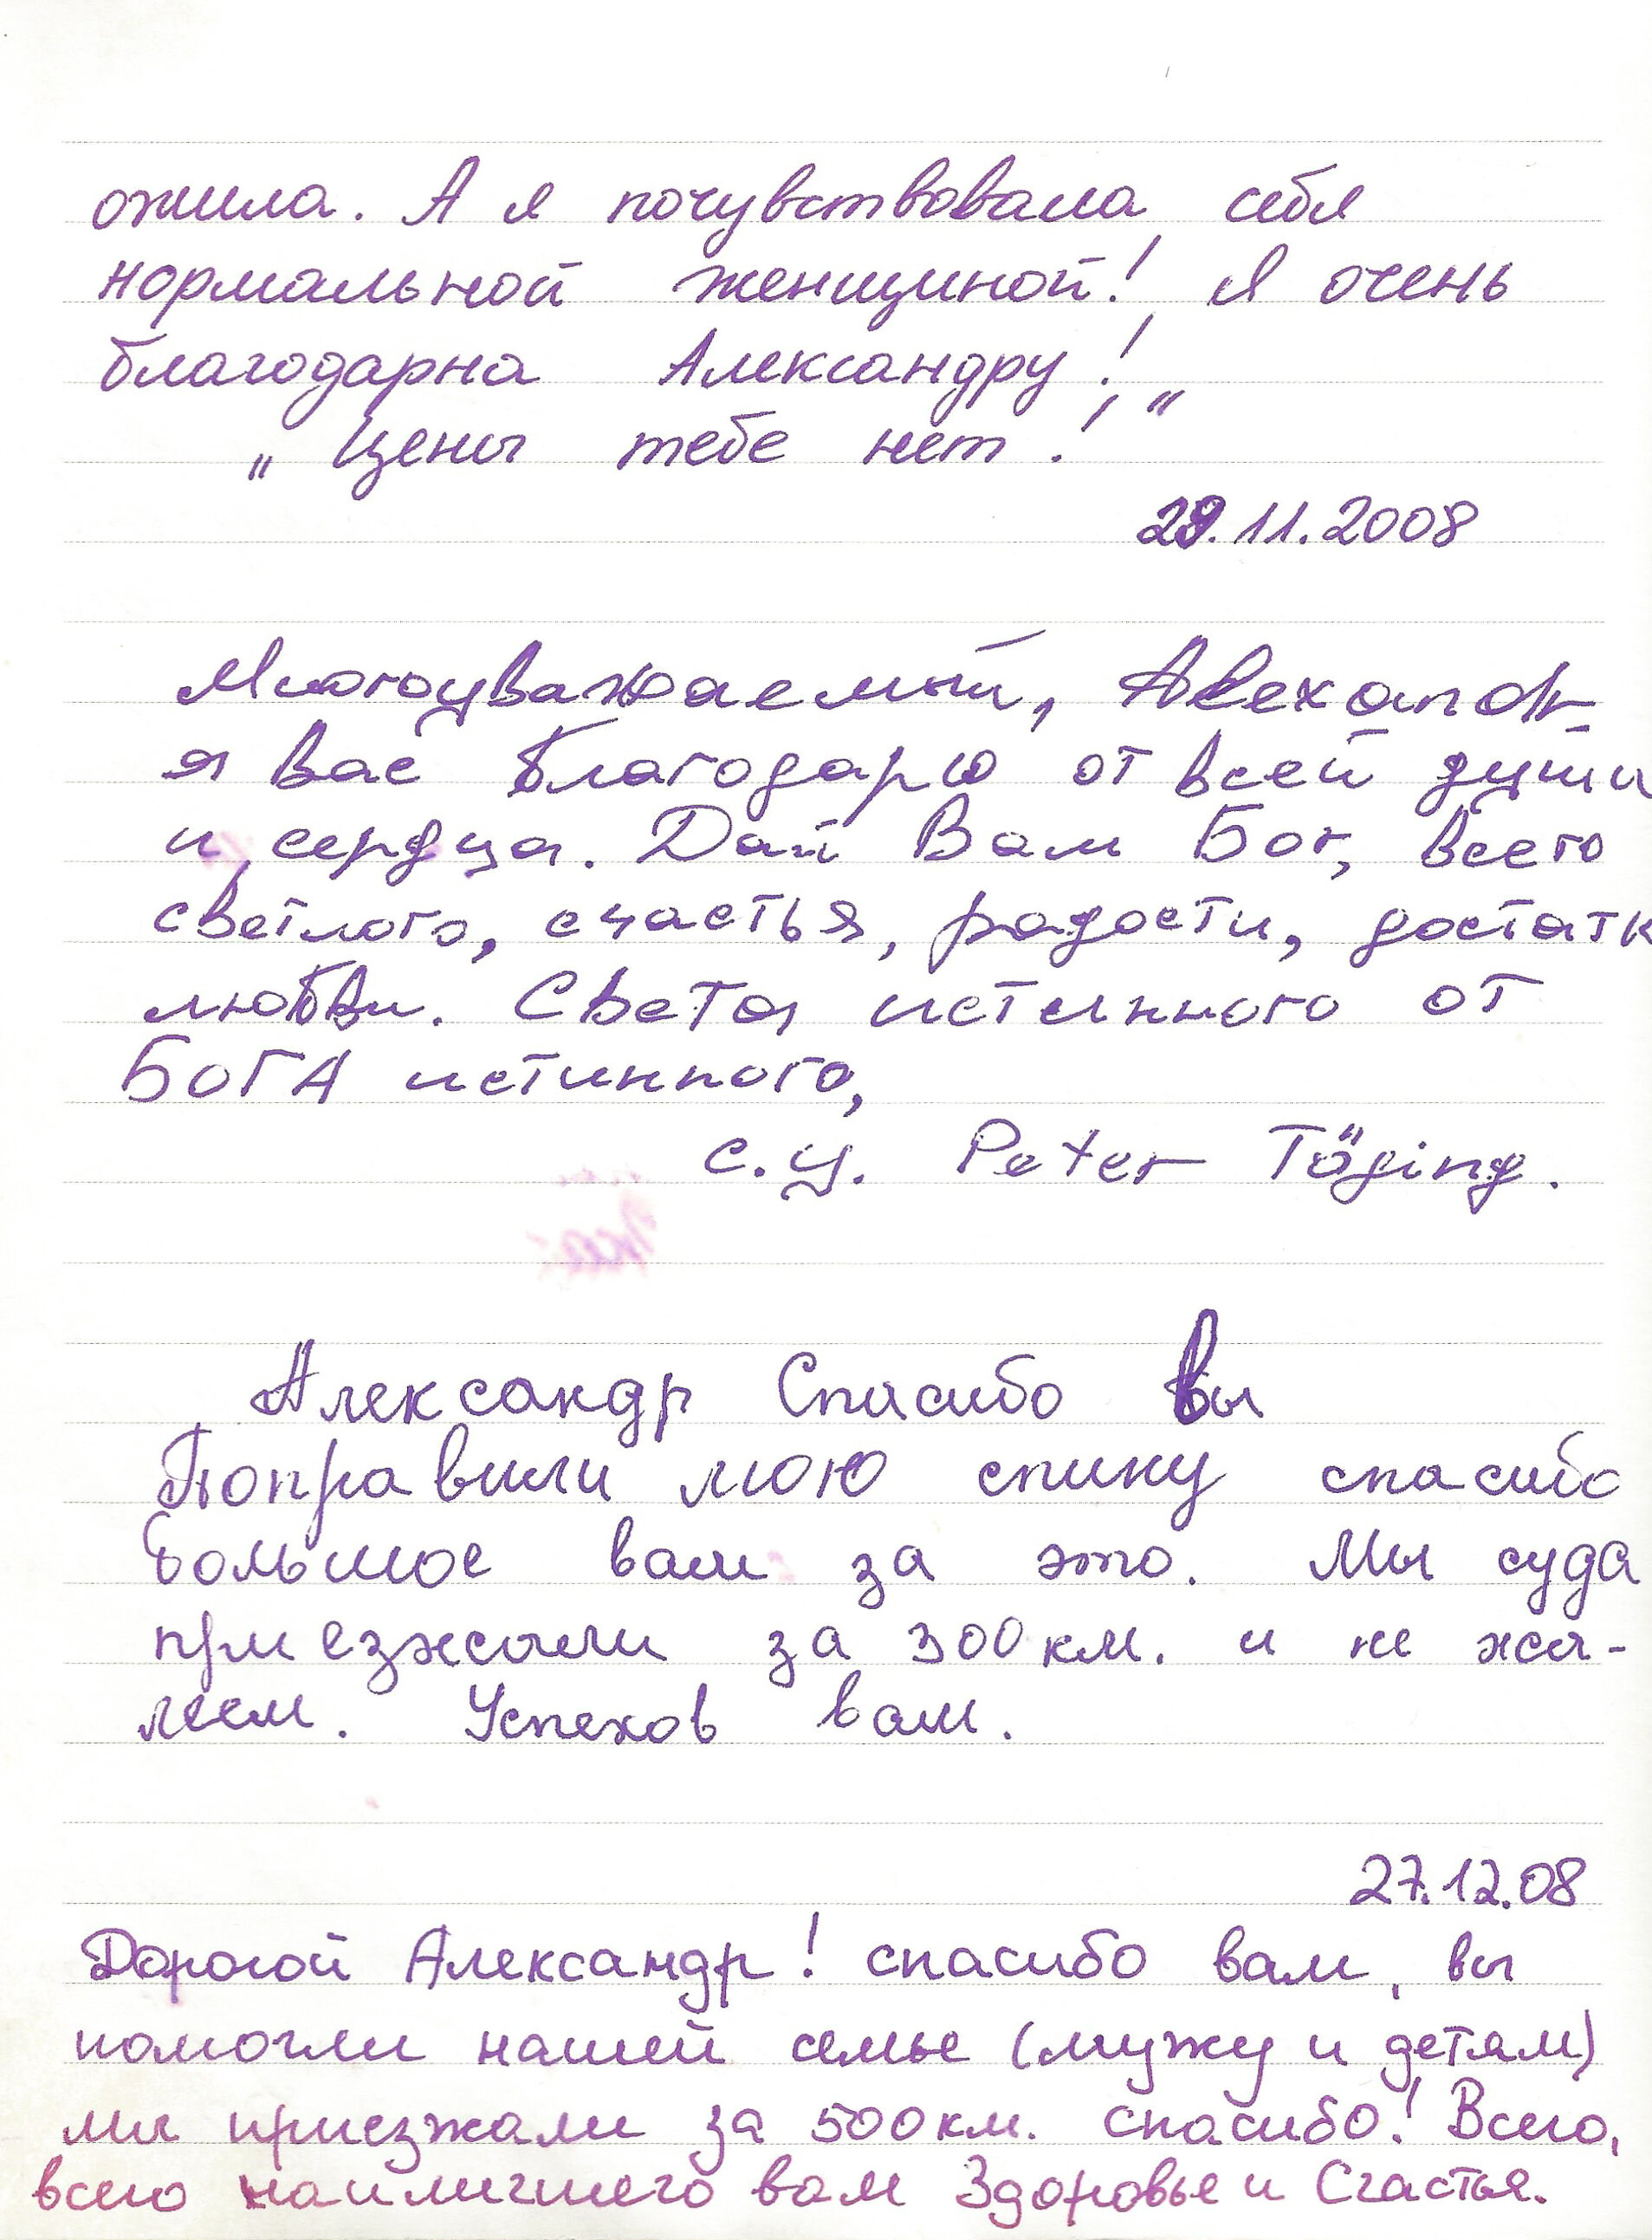 ожила. А я почувствовала себя
нормальной женщиной! Я очень
благодарна Александру!
„Цены тебе нет!"
29.11.2008
Многоуважаемый, Alexandr
я вас благодарю от всей души
и сердца. Дай Вам Бог, всего
светлого, счастья, радости, достатк
любви. Света истинного от
БОГА истинного,
с.у. Peter Töging.
Александр Спасибо Вы
Поправили мою спину спасибо
большое вам за это. Мы суда
приезжали за 300 км. и не жа-
леем. Успехов вам.
27.12.08
Дорогой Александр! спасибо вам, вы
помогли нашей семье (мужу и детям)
мы приезжали за 500 км. спасибо! Всего,
всего наилучшего вам Здоровье и Счастья.